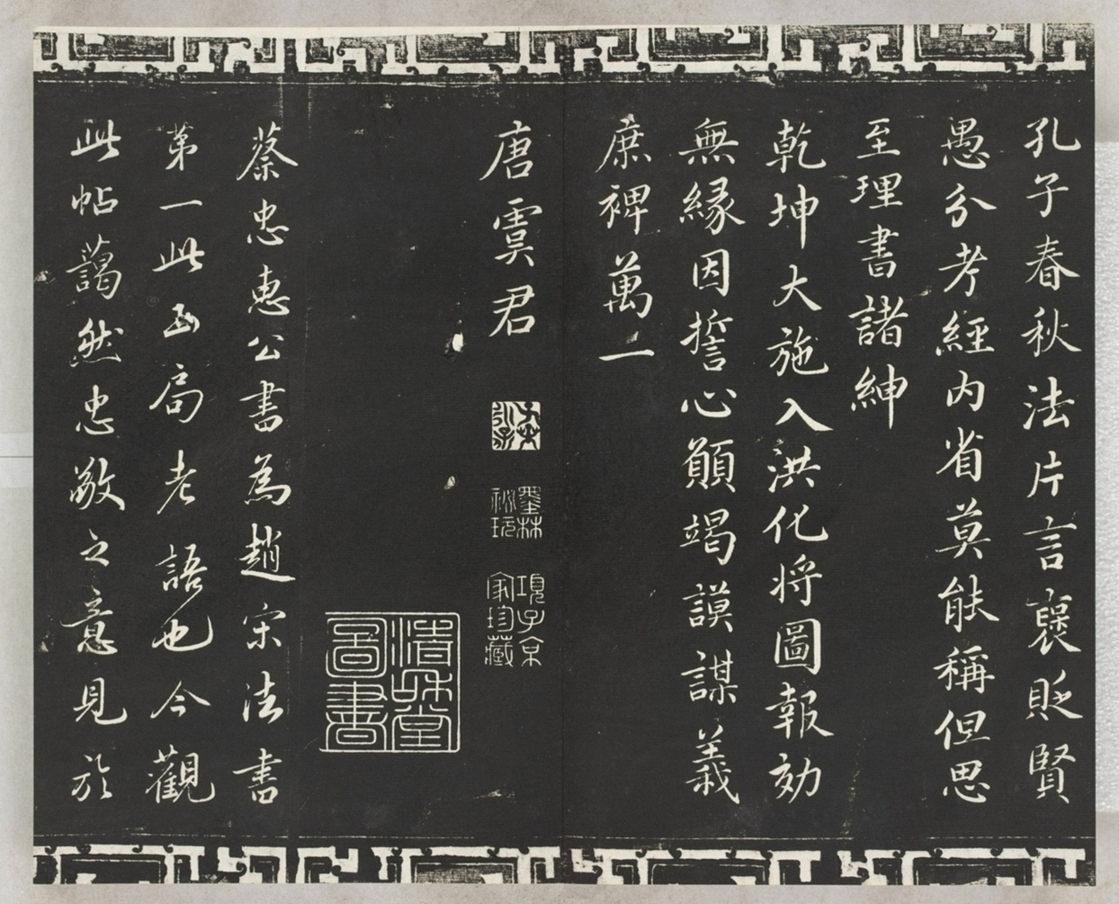 孔子春秋法片言襃貶賢
愚分考經内省莫能稱但思
至理書諸紳
乾坤大施入洪化将圖報効
無緣因誓心願竭謨謀義
庶裨萬一
唐虞君
墨林秘玩
項子京家珍藏
蔡忠惠公書為趙宋法書
第一此玉局老語也今觀
此帖藹然忠敬之意見於